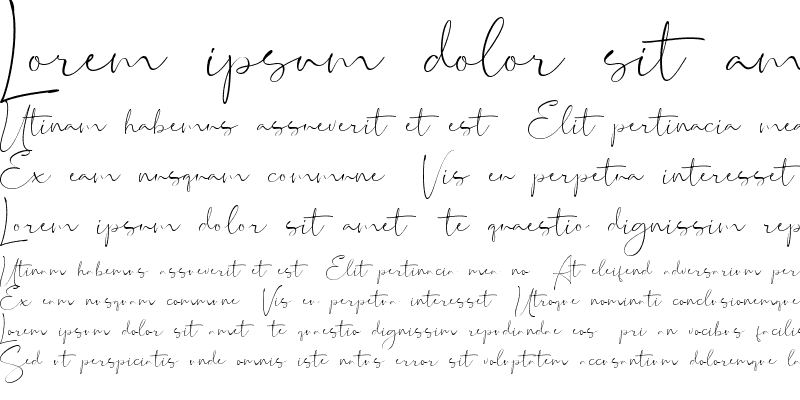 Lorem ipsum dolor sit am
Utinam habemus assueverit et est Elit pertinacia mea
Ex eam nusquam commune Vis eu perpetua interesset
Lorem ipsum dolor sit amet te quaestio dignissim rep
Utinam habemus assueverit et est Elit pertinacia mea no At eleifend adversarium per
Ex eam nusquam commune Vis eu perpetua interesset Utroque nominati conclusionemque
Lorem ipsum dolor sit amet te quaestio dignissim repudiandae eos pri an vocibus facilis
Sed ut perspiciatis unde omnis iste natus error sit voluptatem accusantium doloremque la